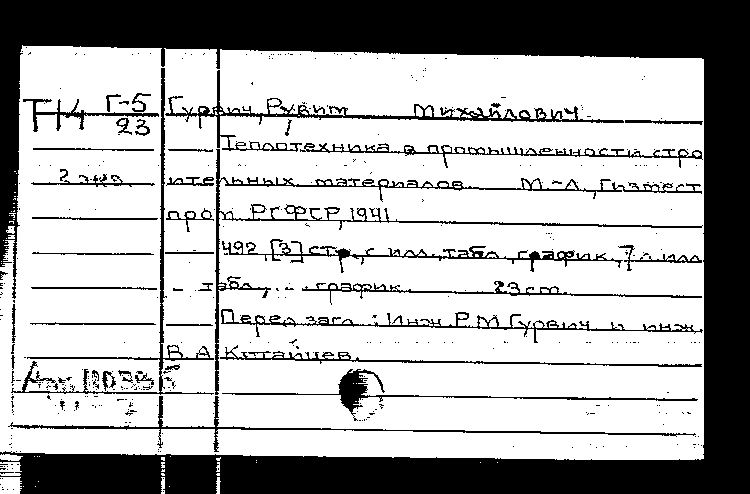 ТН4 Г-5 Гурвич, Рувим Михайлович.
23
Теплотехника в промышленности стро
2 экз. ительных материалов. М.-Л., Гизмест
пром РСФСР, 1941.
492, [3] стр., с илл., табл., график., 7 л. илл
., табл., график. 23 см.
Перед загл.: Инж. Р.М. Гурвич и инж.
В. А. Китайцев.